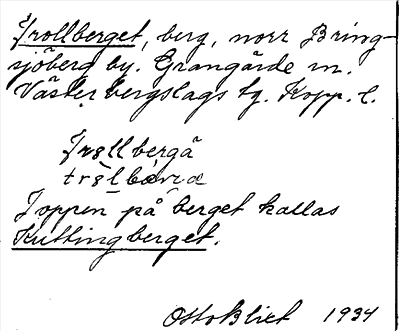 Trollberget, berg, norr Bring-
sjöberg by. Grangärde sn.
Västerbergslags tg. Kopp. l.
Trollbergä
Toppen på berget kallas
Kuttingberget.
Otto Blixt 1934